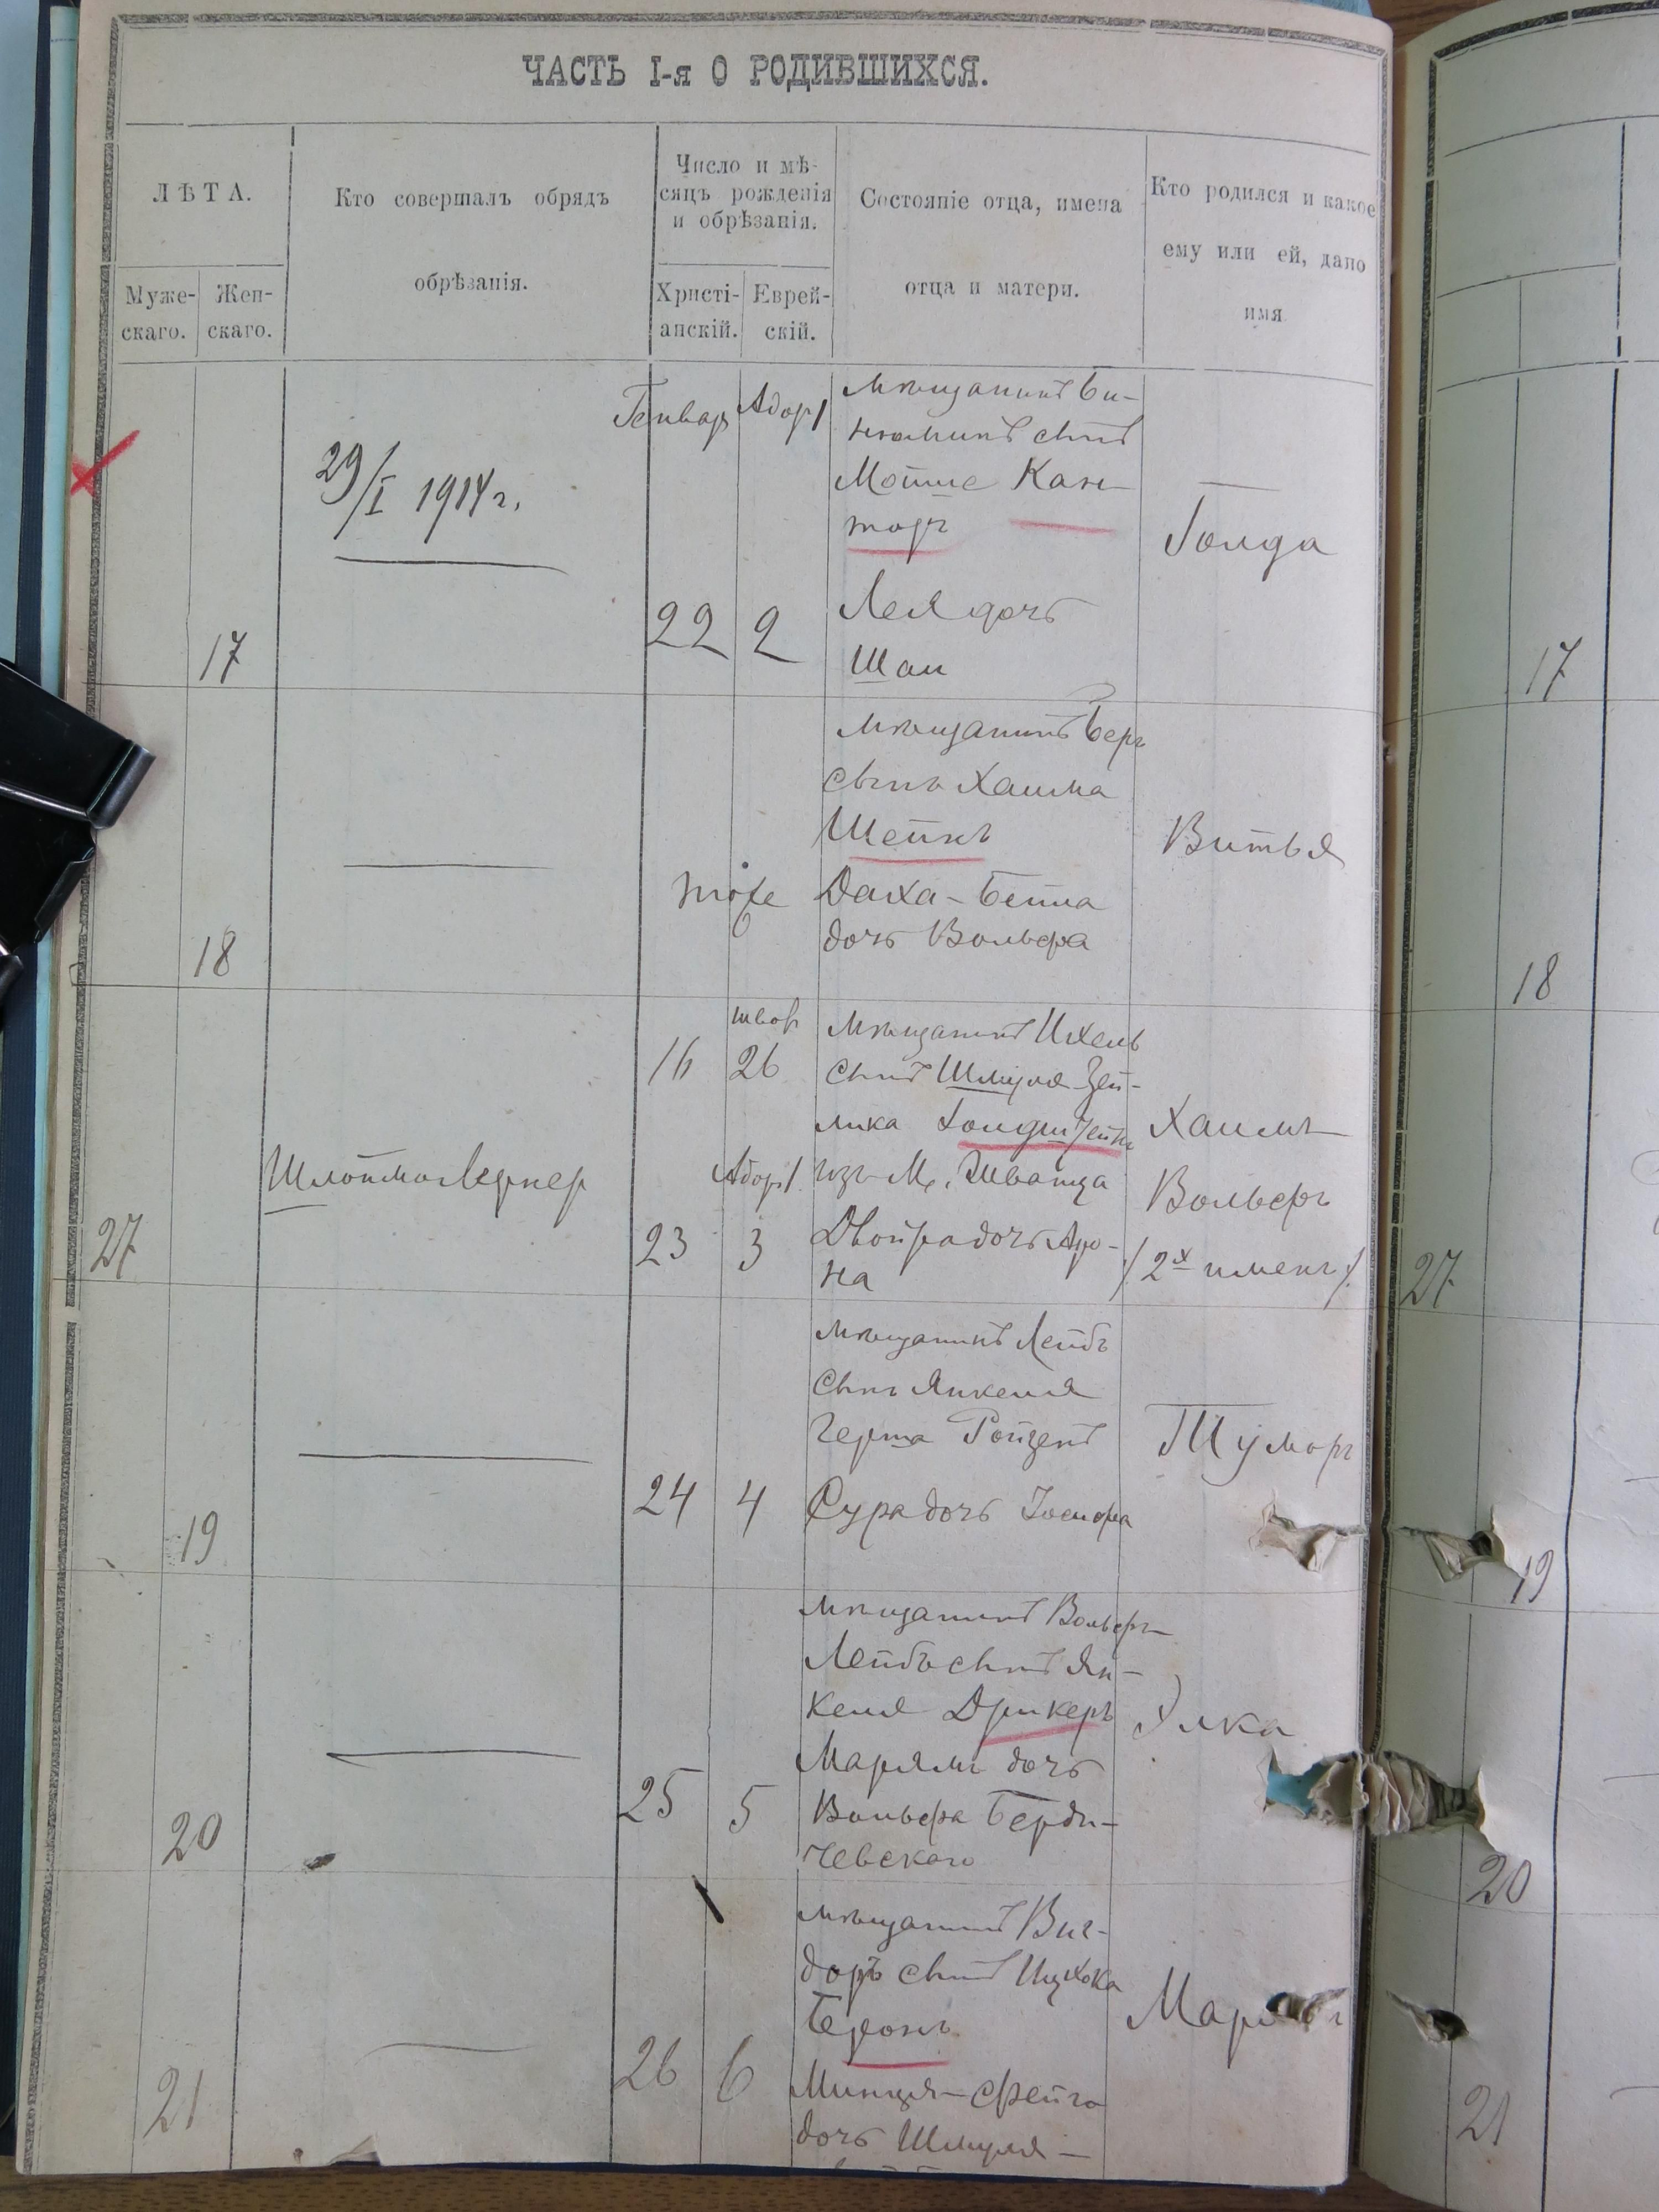 ЧАСТЬ I-я О РОДИВШИХСЯ.
ЛѢТА.
Муже-
скаго.
Жен-
скаго.
Кто совершалъ обрядъ
обрѣзанія.
Число и мѣ-
сяцъ рожденія
и обрѣзанія.
Христі-
анскій.
Еврей-
скій.
Состояніе отца, имена
отца и матери.
Кто родился и какое
ему или ей, дано
имя
17
29/I 1914 г.
Генваръ
22
Адоръ
2
мѣщанинъ Би-
нюминъ сынъ
Мойше Кан-
торъ
Лея дочь
Шаи
Голда
17
18
тоже
мѣщанинъ Беръ
сынъ Хаима
Штейнъ
Даха-Бейла
дочь Вольфа
Витья
18
27
Шлойма Лернер
16
23
швот
26
Адоръ
3
мѣщанинъ Ихель
сынъ Шмуля-Зей-
лика Голдштейнъ
изъ М. Шванца
Двойра дочь Аро-
на
Хаимъ
Вольфъ
/2х именъ/
27
19
24
4
мѣщанинъ Лейбъ
сынъ Янкеля
Герша Ройзенъ
Сура дочь Іосифа
Тумаръ
19
20
25
5
мѣщанинъ Вольфъ-
Лейбъ сынъ Ян-
келя Дрикеръ
Марямъ дочь
Вольфа Берди-
чевскаго
Элка
20
21
26
6
мѣщанинъ Виг-
доръ сынъ Ицхока
Беронъ
Минця-Фейга
дочь Шмуля-
21